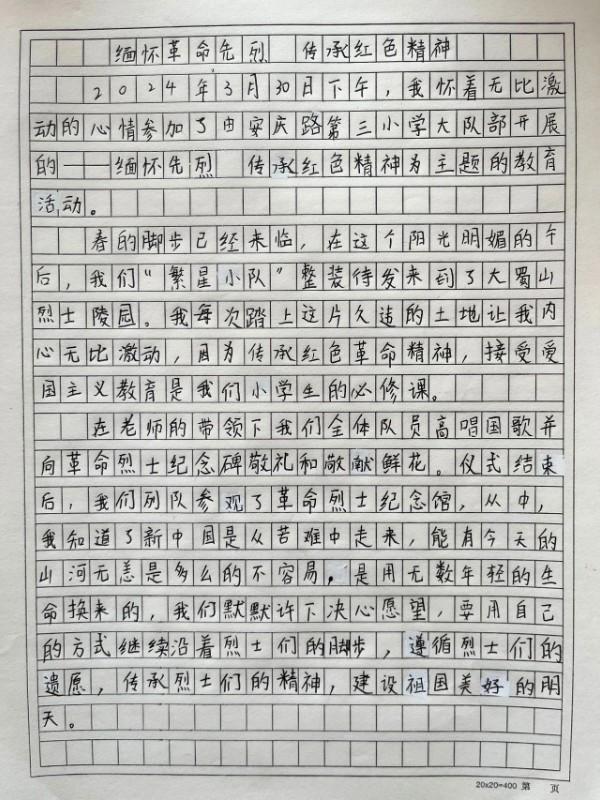 缅怀革命先烈 传承红色精神
2024年3月30日下午，我怀着无比激
动的心情参加了由安庆路第三小学大队部开展
的——缅怀先烈 传承红色精神为主题的教育
活动。
春的脚步已经来临，在这个阳光明媚的午
后，我们“繁星小队”整装待发来到了大蜀山
烈士陵园。我每次踏上这片久违的土地让我内
心无比激动，因为传承红色革命精神，接受爱
国主义教育是我们小学生的必修课。
在老师的带领下我们全体队员高唱国歌并
向革命烈士纪念碑敬礼和敬献鲜花。仪式结束
后，我们列队参观了革命烈士纪念馆，从中，
我知道了新中国是从苦难中走来，能有今天的
山河无恙是多么的不容易，是用无数年轻的生
命换来的，我们默默许下决心愿望，要用自己
的方式继续沿着烈士们的脚步，遵循烈士们的
遗愿，传承烈士们的精神，建设祖国美好的明
天。
20x20=400 第 页